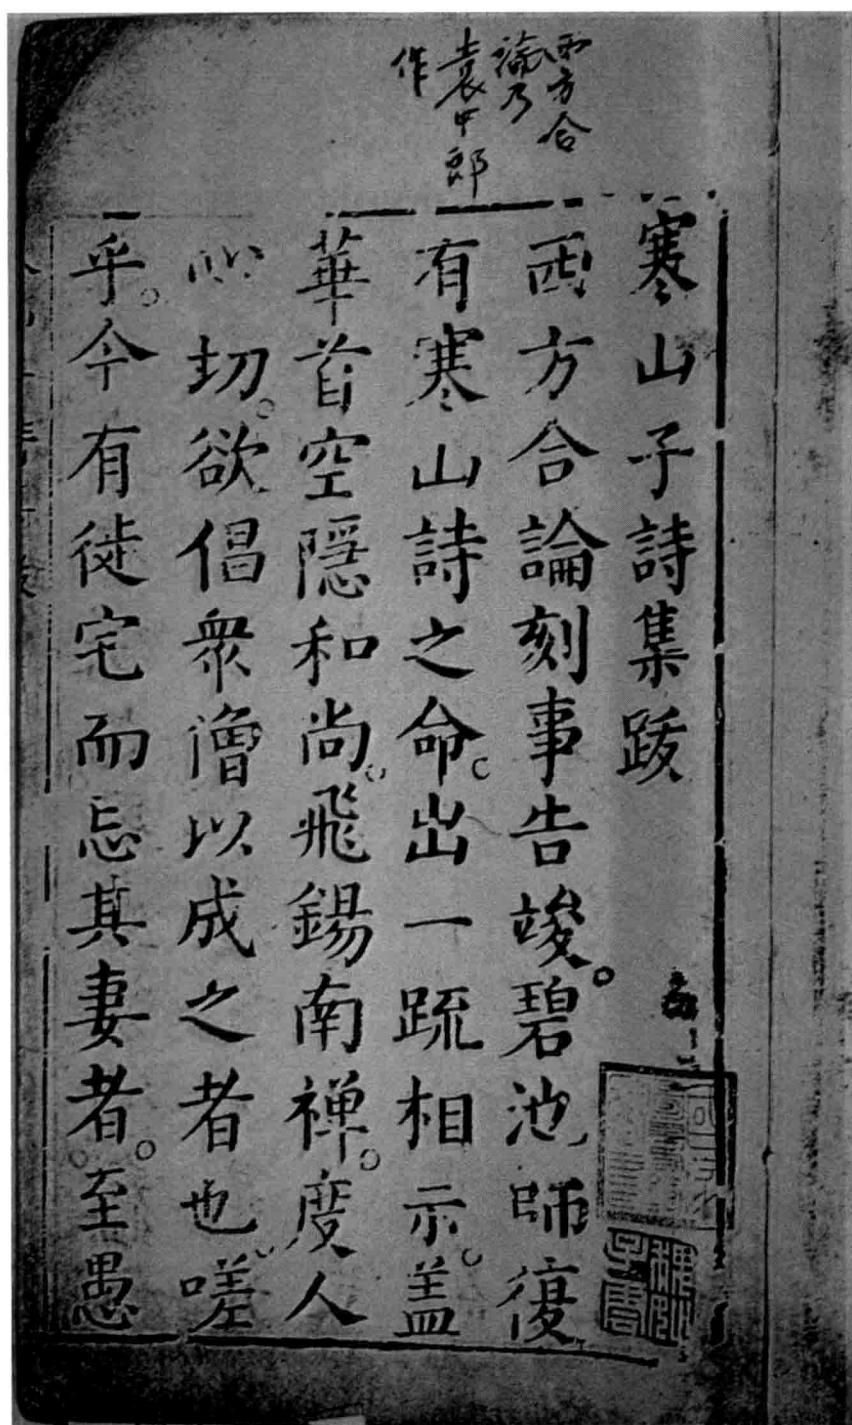 西方合
論乃
袁中郎
作
寒山子詩集跋
西方合論刻事告竣。碧池師復
有寒山詩之命。出一䟽相示。盖
華首空隱和尚。飛錫南禅。度人
心切。欲倡衆僧以成之者也。嗟
乎。今有徙宅而忘其妻者。至愚